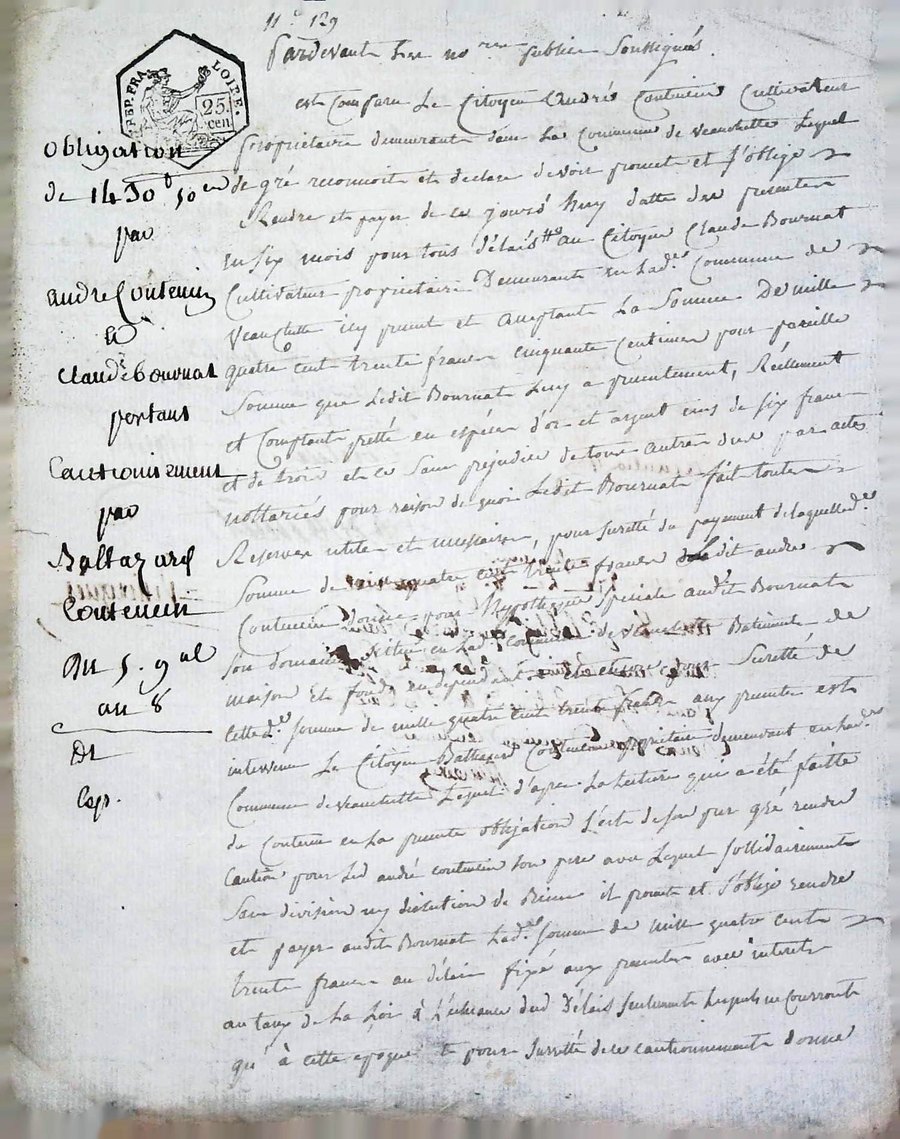 11.e 129
Pardevant Les no.res publics Soussignés.
REP. FRA. LOIRE.
25 cen
est Comparu Le Citoyen André Coutencin Cultivateur
propriétaire demeurant dans La Commune de veauchette Lequel
de gré reconnoit et declare devoir promet et s'oblige
Rendre et payer de ce jourd'huy datte des presentes
en six mois pour tous délais au Citoyen Claude Bournat
Cultivateur propriétaire Demeurant en Lad.e Commune de
Veauchette icy present et acceptant La Somme De mille
quatre cent trente francs cinquante Centimes pour pareille
Somme que Ledit Bournat Luy a presentement, Réellement
et Comptant prêtté en espéces d'or et argent ecus de six francs
et de trois et ce Sans préjudice de tous autres dus par actes
nottariés pour raison de quoi Ledit Bournat fait toutes
Reserves utiles et necessaires, pour suretté du payement de laquelle d.e
Somme de quatre cent trente francs dit andré
Coutencin donne pour Hypotheque Speciale audit Bournat
Son domaine en Lad.e Commune de veauchette Batiments de
maison et fonds en dependant Suretté de
cette d.e Somme de mille quatre cent trente francs aux presentes est
intervenu Le Citoyen Baltazard Coutencin propriétaire demeurant en lad.e
Commune de veauchette Lequel d'après La Lecture qui a été faitte
du Contenu en La presente obligation s'est de son pur gré rendu
Caution pour Led andré coutencin Son pere avec Lequel sollidairement
Sans division ny discution de Biens il promet et s'oblige rendre
et payer audit Bournat Lad.e Somme de mille quatre cent
trente francs au délai fixé aux presentes avec interets
au taux de La Loi à L'échéance dud délais seulement Lesquels ne Courront
qu'à cette époque et pour Suretté de ce cautionnement donne
Obligation
de 1430 f 50 c
par
andré Coutencin
a
Claude Bournat
portant
Cautionnement
par
Baltazard
Coutencin
Du 5. 9.al
an 8